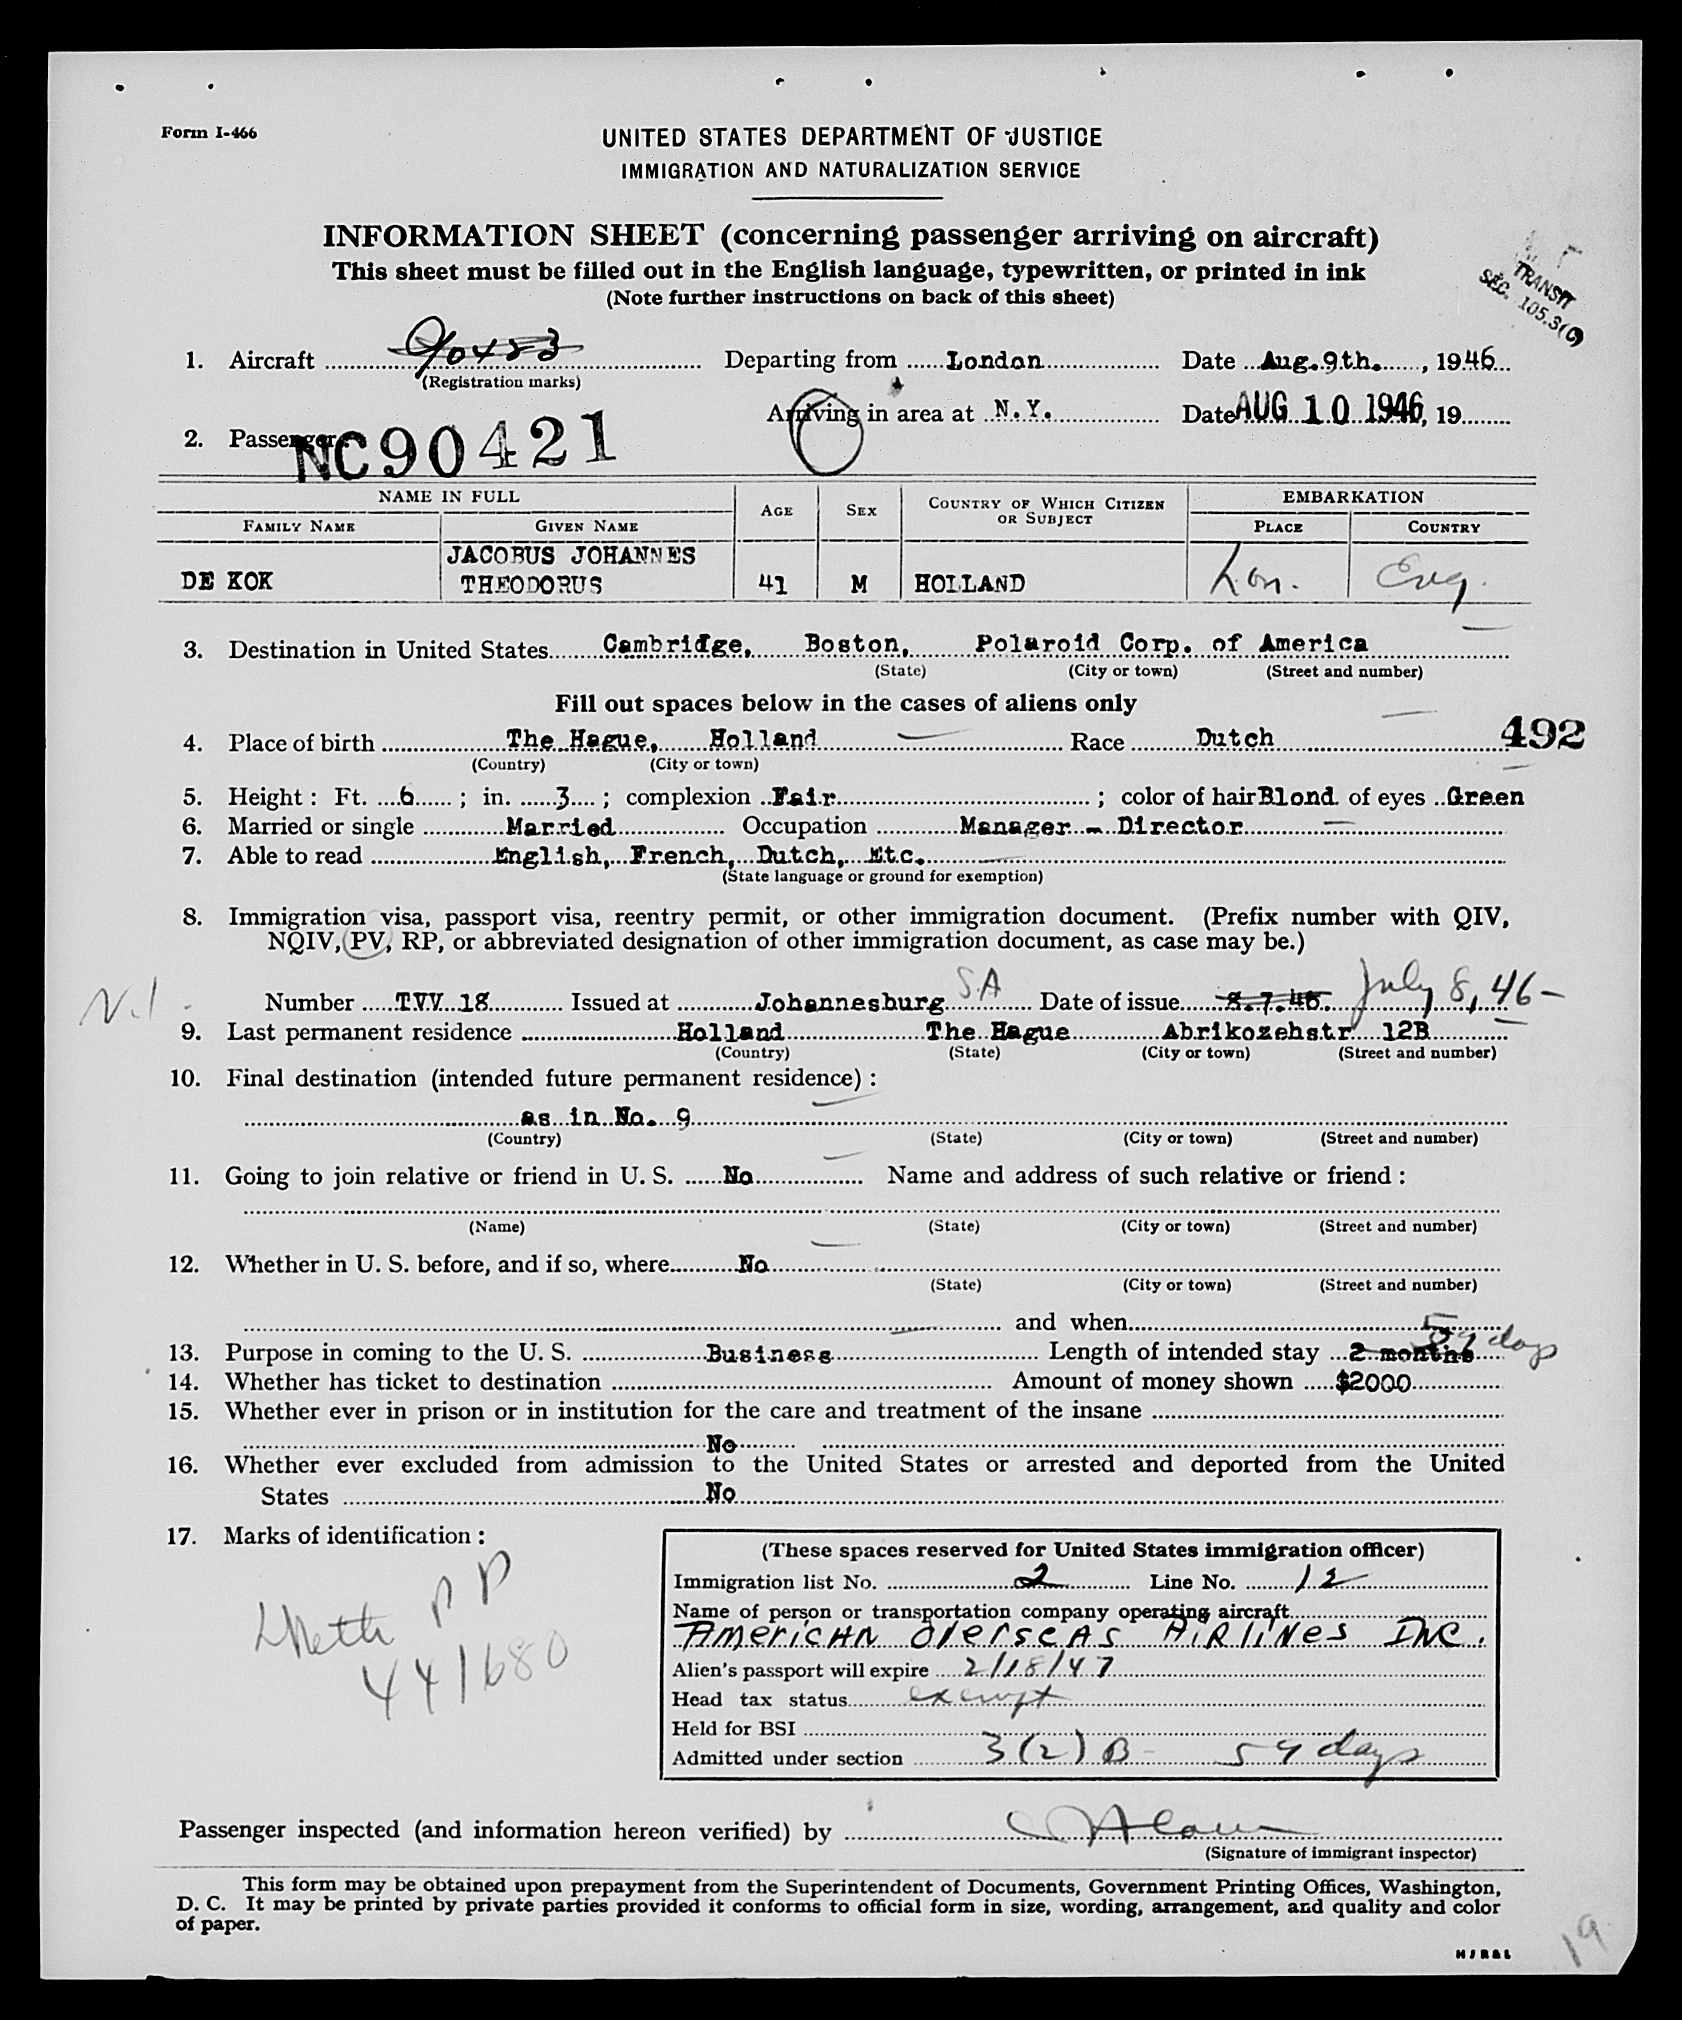 Form I-466
UNITED STATES DEPARTMENT OF JUSTICE
IMMIGRATION AND NATURALIZATION SERVICE
INFORMATION SHEET (concerning passenger arriving on aircraft)
This sheet must be filled out in the English language, typewritten, or printed in ink
(Note further instructions on back of this sheet)
TRANSIT
SEC. 105.3(c)
1. Aircraft Departing from London Date Aug. 9th. , 1946
(Registration marks)
Arriving in area at N.Y. Date AUG 10 1946, 19
2. Passenger NC90421
NAME IN FULL AGE SEX COUNTRY OF WHICH CITIZEN OR SUBJECT EMBARKATION
FAMILY NAME GIVEN NAME PLACE COUNTRY
JACOBUS JOHANNES
DE KOK THEODORUS 41 M HOLLAND Lon. Eng.
3. Destination in United States Cambridge, Boston, Polaroid Corp. of America
(State) (City or town) (Street and number)
Fill out spaces below in the cases of aliens only
4. Place of birth The Hague, Holland Race Dutch 492
(Country) (City or town)
5. Height: Ft. 6 ; in. 3 ; complexion Fair ; color of hair Blond of eyes Green
6. Married or single Married Occupation Manager - Director
7. Able to read English, French, Dutch, Etc.
(State language or ground for exemption)
8. Immigration visa, passport visa, reentry permit, or other immigration document. (Prefix number with QIV,
NQIV, PV, RP, or abbreviated designation of other immigration document, as case may be.)
Number TVV 18 Issued at Johannesburg S.A Date of issue 8.7.46. July 8, 46-
9. Last permanent residence Holland The Hague Abrikozehstr 12B
(Country) (State) (City or town) (Street and number)
10. Final destination (intended future permanent residence) :
as in No. 9
(Country) (State) (City or town) (Street and number)
11. Going to join relative or friend in U. S. No Name and address of such relative or friend :
(Name) (State) (City or town) (Street and number)
12. Whether in U. S. before, and if so, where No
(State) (City or town) (Street and number)
and when
13. Purpose in coming to the U. S. Business Length of intended stay 2 months 59 days
14. Whether has ticket to destination Amount of money shown $2000
15. Whether ever in prison or in institution for the care and treatment of the insane
No
16. Whether ever excluded from admission to the United States or arrested and deported from the United
States No
17. Marks of identification :
Neth PP
441680
(These spaces reserved for United States immigration officer)
Immigration list No. 2 Line No. 12
Name of person or transportation company operating aircraft
AMERICAN OVERSEAS AIRLINES INC.
Alien's passport will expire 2/18/47
Head tax status exempt
Held for BSI
Admitted under section 3(2)B - 59 days
Passenger inspected (and information hereon verified) by
(Signature of immigrant inspector)
This form may be obtained upon prepayment from the Superintendent of Documents, Government Printing Offices, Washington,
D. C. It may be printed by private parties provided it conforms to official form in size, wording, arrangement, and quality and color
of paper.
19